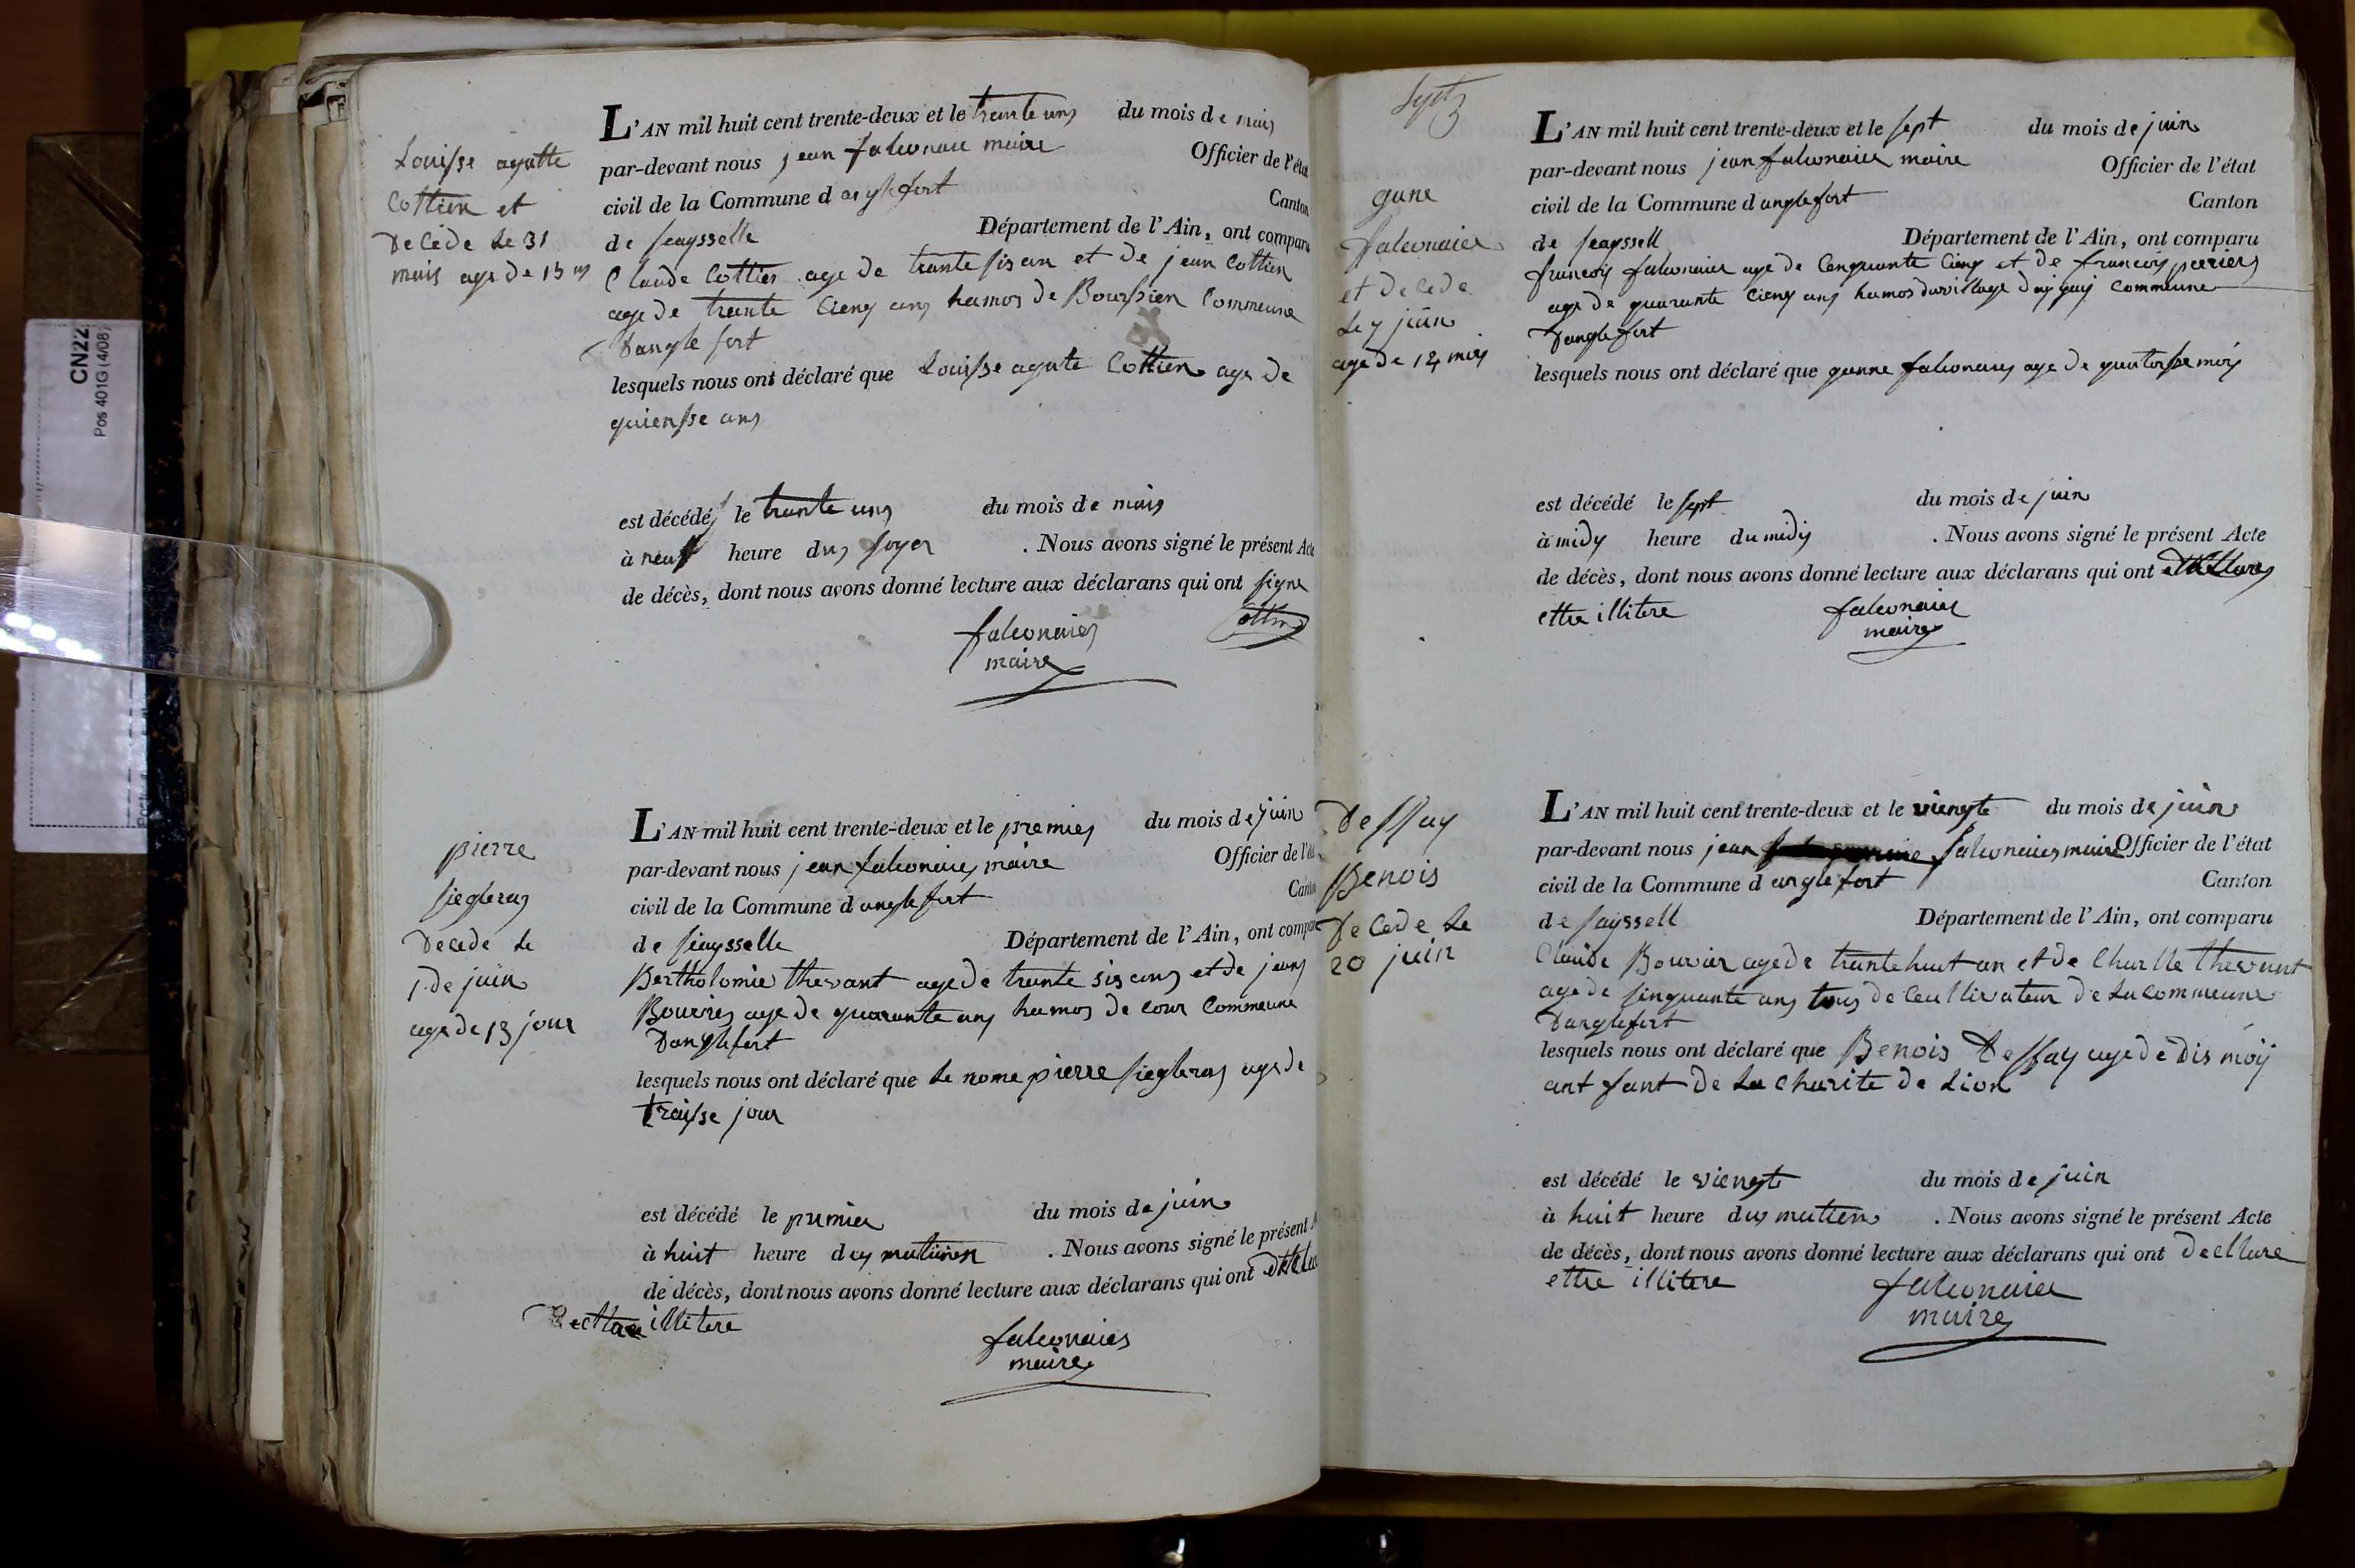 CN22
Pos 401G (4/08)
Louisse agatte
Cottien et
Decede Le 31
mais age de 15 ans
L'AN mil huit cent trente-deux et le trante uns du mois de mais
par-devant nous jean falconnier maire Officier de l'état
civil de la Commune d anglefort Canton
de seaysselle Département de l'Ain, ont comparu
Claude Cottier age de trante sis an et de jean Cottien
age de trante Cienq ans hamos de Boursien Commeune
Dangle fort
lesquels nous ont déclaré que Louisse agate Cottien age de
quiensse ans
est décédé le trante uns du mois de mais
à neuf heure dus soyer . Nous avons signé le présent Acte
de décès, dont nous avons donné lecture aux déclarans qui ont signe
falconaier Cottin
maire
pierre
siegleras
Decede Le
1 de juin
age de 13 jour
L'AN mil huit cent trente-deux et le premier du mois de juin
par-devant nous jean falconaier maire Officier de l'état
civil de la Commune d anglefort Canton
de seaysselle Département de l'Ain, ont comparu
Bertholomie thevant age de trante sis ans et de jean
Bouvier age de quarante ans hamos de cour Commeune
Danglefort
lesquels nous ont déclaré que Le nome pierre siegleras age de
traisse jour
est décédé le premier du mois de juin
à huit heure dus matien . Nous avons signé le présent
de décès, dont nous avons donné lecture aux déclarans qui ont
illitere
falconaier
maire
Sept
gane
falconaier
et decede
Le 7 juin
age de 14 mois
L'AN mil huit cent trente-deux et le sept du mois de juin
par-devant nous jean falconaier maire Officier de l'état
civil de la Commune d anglefort Canton
de seayssell Département de l'Ain, ont comparu
francois falconaier age de Cenquante Cienq et de francois perier
age de quarante Cienq ans hamos du village Commeune
Danglefort
lesquels nous ont déclaré que ganne falconaier age de quatorsse mois
est décédé le sept du mois de juin
à midy heure du midy . Nous avons signé le présent Acte
de décès, dont nous avons donné lecture aux déclarans qui ont
ettre illitere falconaier
maire
Dessay
Benois
De Cede Le
20 juin
L'AN mil huit cent trente-deux et le viengte du mois de juin
par-devant nous jean falconaier maire Officier de l'état
civil de la Commune d anglefort Canton
de sayssell Département de l'Ain, ont comparu
Claude Bouvier age de trante huit an et de Charlle thevant
age de sinquante ans tous de Ceultivateur de La commeune
Danglefort
lesquels nous ont déclaré que Benois Dessay age de dis moij
ant fant de La charite de Lion
est décédé le viengte du mois de juin
à huit heure dus matien . Nous avons signé le présent Acte
de décès, dont nous avons donné lecture aux déclarans qui ont decllare
ettre illitere falconaier
maire